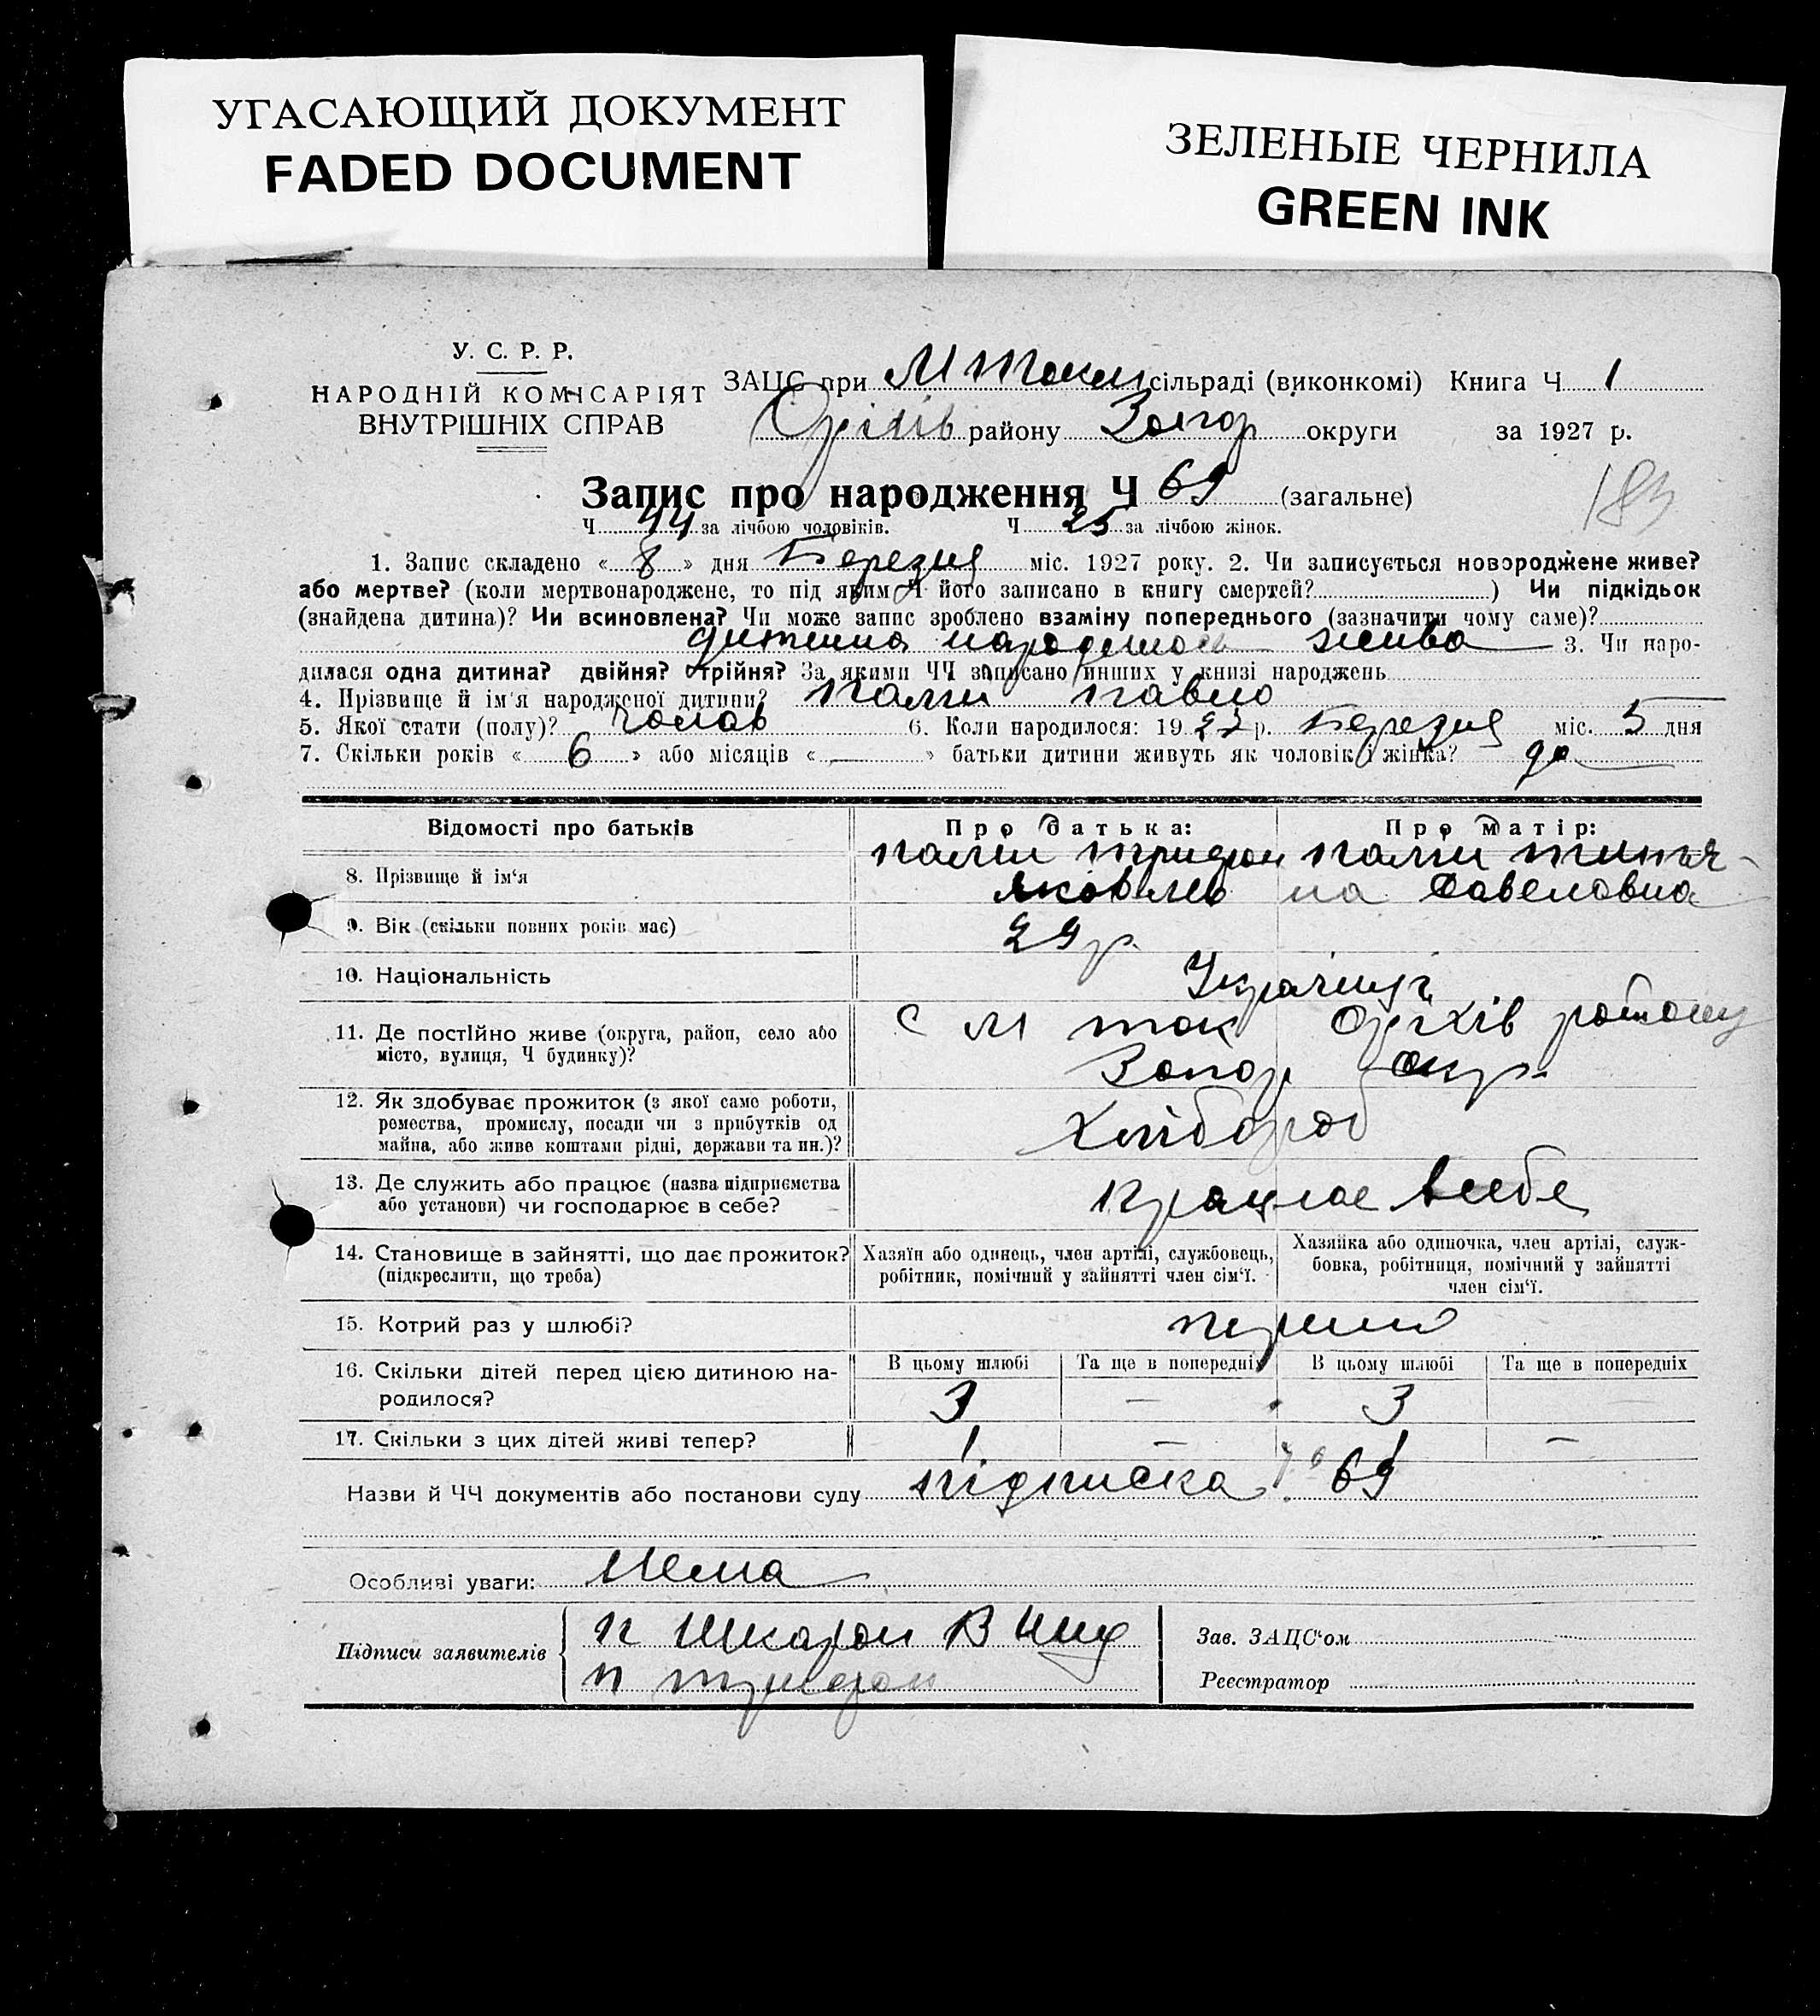 УГАСАЮЩИЙ ДОКУМЕНТ
FADED DOCUMENT
ЗЕЛЕНЫЕ ЧЕРНИЛА
GREEN INK
У. С. Р. Р.
НАРОДНІЙ КОМІСАРІЯТ
ВНУТРІШНІХ СПРАВ
ЗАЦС при М Токм сільраді (виконкомі) Книга Ч 1
Оріхів району Запор округи за 1927 р.
Запис про народження Ч 69 (загальне)
183
Ч 44 за лічбою чоловіків. Ч 25 за лічбою жінок.
1. Запис складено « 8 » дня Березня міс. 1927 року. 2. Чи записується новороджене живе?
або мертве? (коли мертвонароджене, то під яким Ч його записано в книгу смертей? ) Чи підкідьок
(знайдена дитина)? Чи всиновлена? Чи може запис зроблено взаміну попереднього (зазначити чому саме)?
дитина народилась жива 3. Чи наро-
дилася одна дитина? двійня? трійня? За якими ЧЧ записано инших у книзі народжень
4. Прізвище й ім'я народженої дитини? Павло
5. Якої стати (полу)? чолов 6. Коли народилося: 19 27 р. Березня міс. 5 дня
7. Скільки років « 6 » або місяців « — » батьки дитини живуть як чоловік і жінка? да
Відомості про батьків Про батька: Про матір:
8. Прізвище й ім'я
Трифон
Яковлев на Савеловна
9. Вік (скільки повних років має) 29 р.
10. Національність Українці
11. Де постійно живе (округа, район, село або
місто, вулиця, Ч будинку)?
с М Ток Оріхів району
Запор окр.
12. Як здобуває прожиток (з якої саме роботи,
ремества, промислу, посади чи з прибутків од
майна, або живе коштами рідні, держави та ин.)?
Хлібороб
13. Де служить або працює (назва підприємства
або установи) чи господарює в себе?
працює всебе
14. Становище в зайнятті, що дає прожиток?
(підкреслити, що треба)
Хазяїн або одинець, член артілі, службовець,
робітник, помічний у зайнятті член сім'ї.
Хазяйка або одиночка, член артілі, служ-
бовка, робітниця, помічний у зайнятті
член сім'ї.
15. Котрий раз у шлюбі? перший
16. Скільки дітей перед цією дитиною на-
родилося?
В цьому шлюбі Та ще в попередніх В цьому шлюбі Та ще в попередніх
3 — 3
17. Скільки з цих дітей живі тепер? 1 — 1 —
Назви й ЧЧ документів або постанови суду підписка № 69
Особливі уваги: Нема
Підписи заявителів
п Трифон
Зав. ЗАЦС'ом
Реєстратор